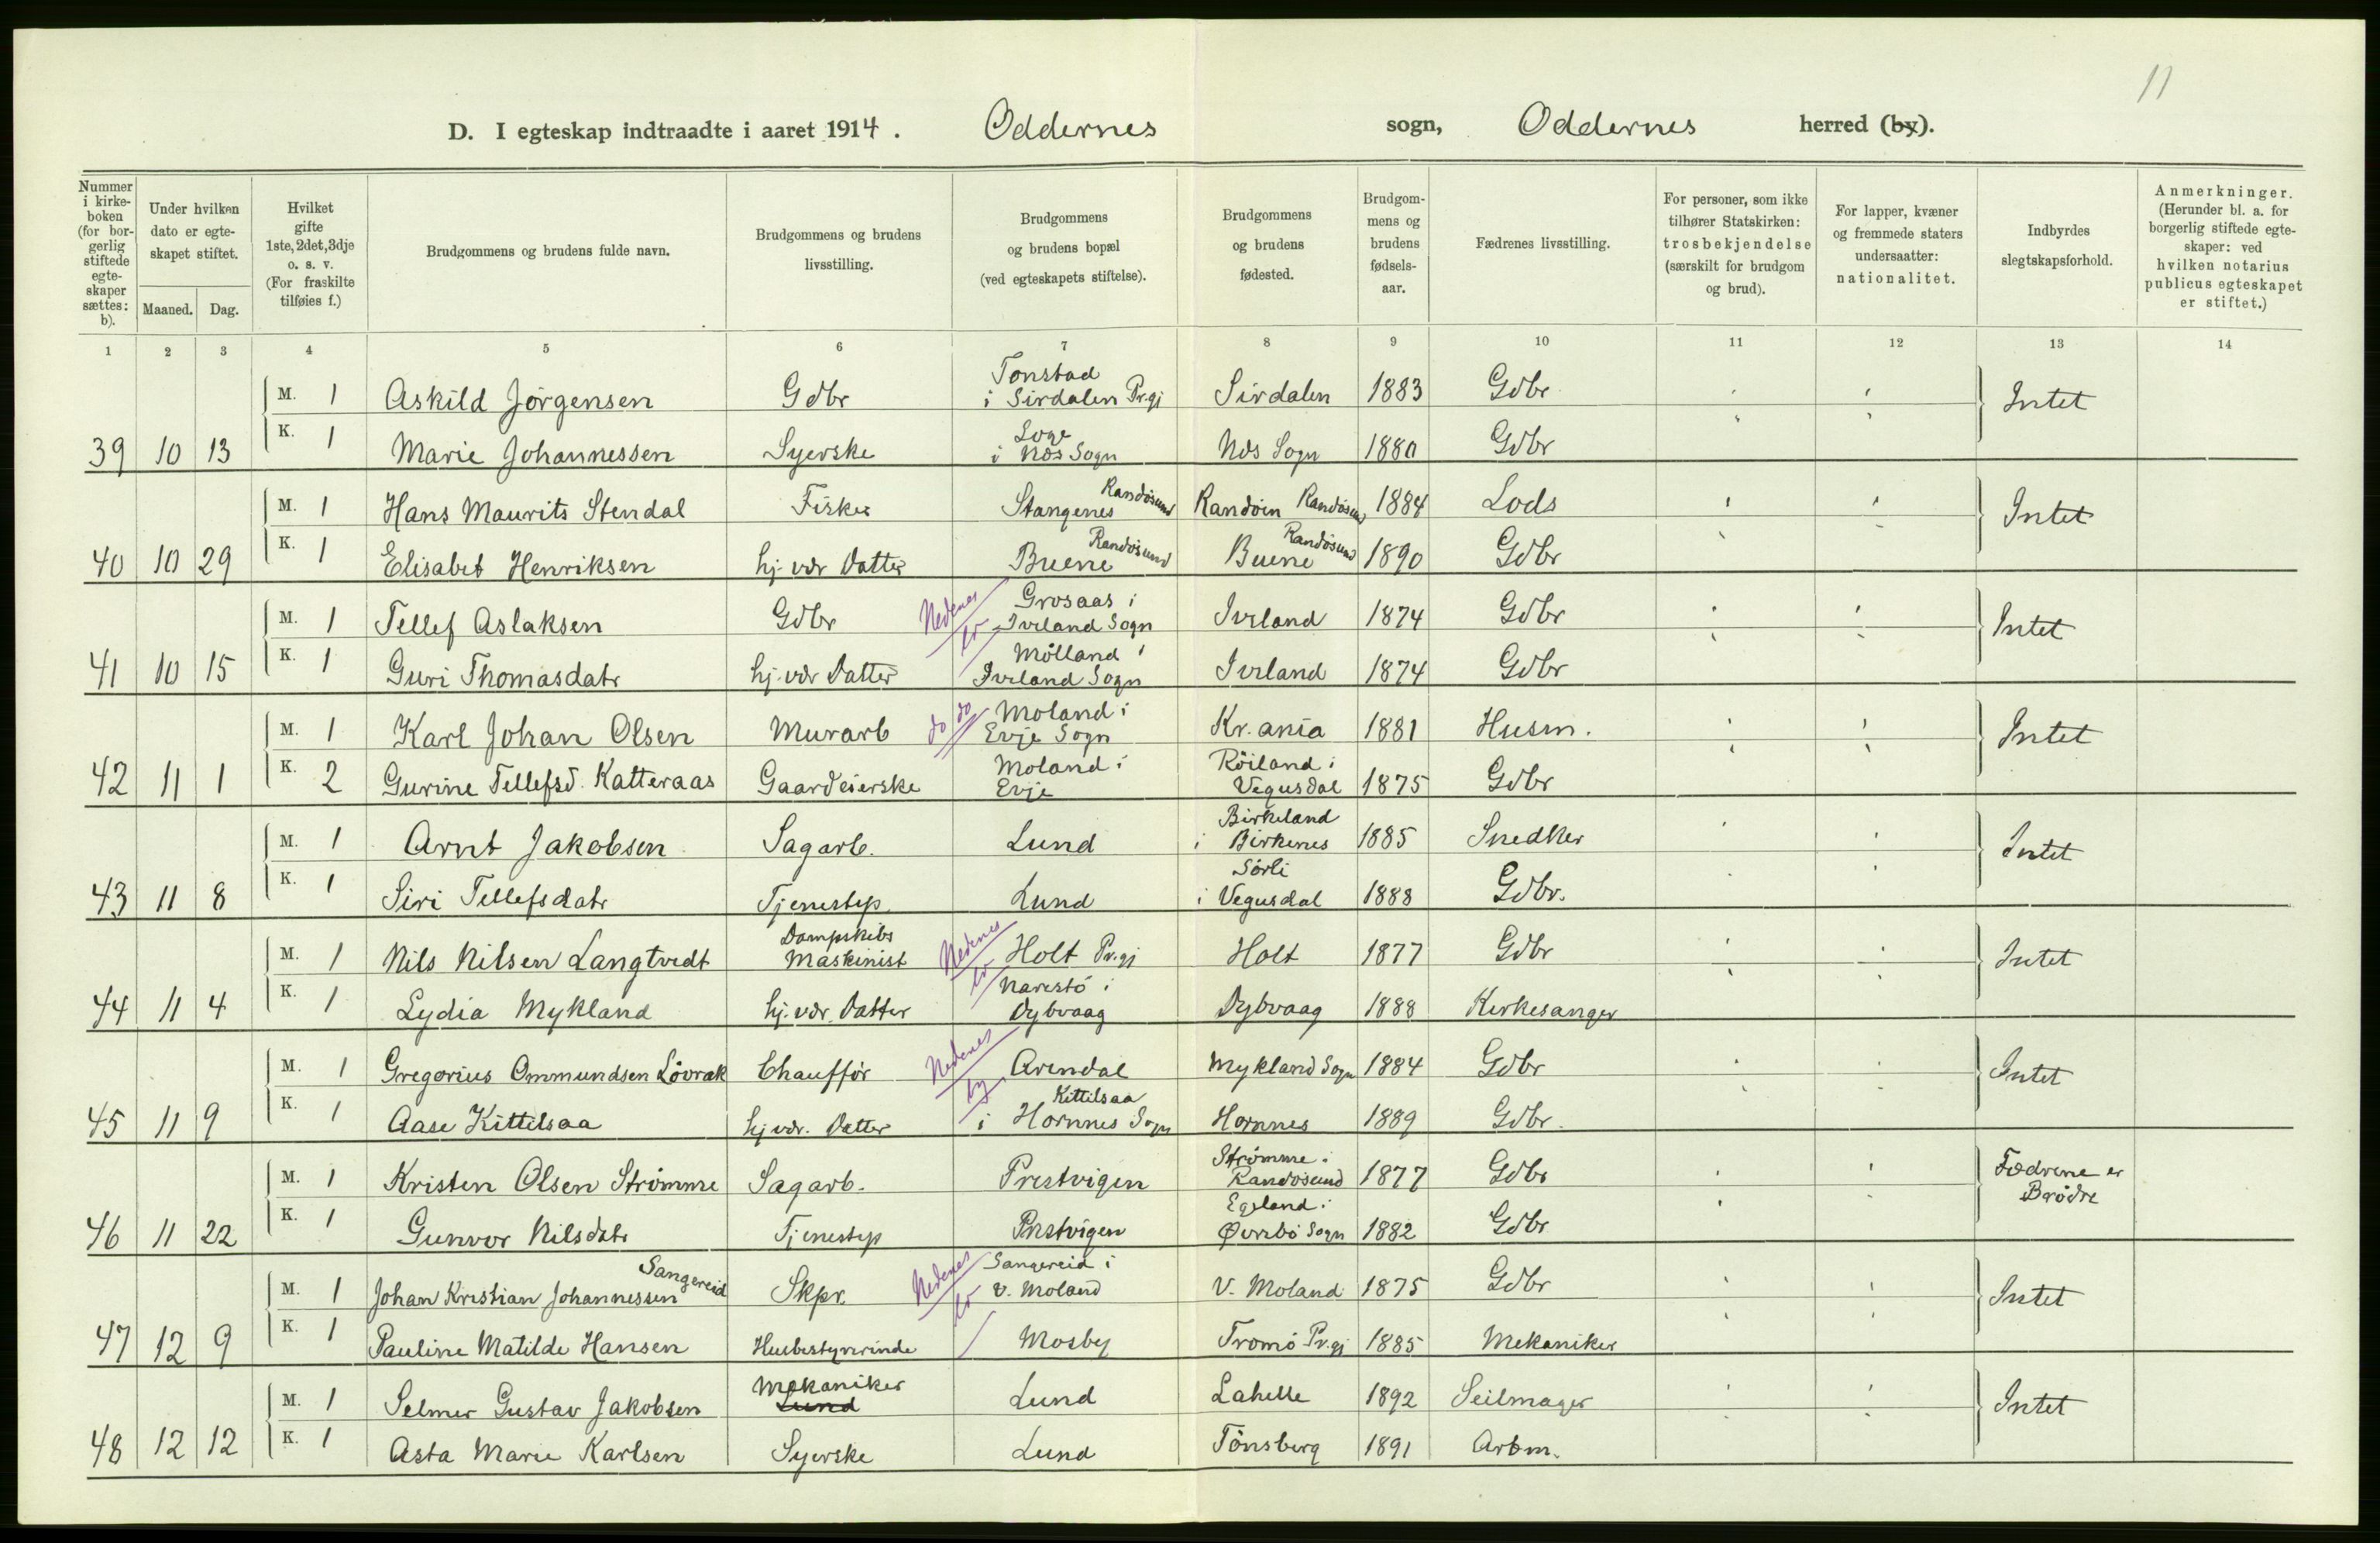 11
D. I egteskap indtraadte i aaret 1914. Oddernes sogn, Oddernes herred (by).
Nummer i kirkeboken (for borgerlig stiftede egteskaper sættes: b).
Under hvilken dato er egteskapet stiftet.
Maaned. Dag.
Hvilket gifte 1ste, 2det, 3dje o. s. v. (For fraskilte tilføies f.)
Brudgommens og brudens fulde navn.
Brudgommens og brudens livsstilling.
Brudgommens og brudens bopæl (ved egteskapets stiftelse).
Brudgommens og brudens fødested.
Brudgommens og brudens fødselsaar.
Fædrenes livsstilling.
For personer, som ikke tilhører Statskirken: trosbekjendelse (særskilt for brudgom og brud).
For lapper, kvæner og fremmede staters undersaatter: nationalitet.
Indbyrdes slegtskapsforhold.
Anmerkninger. (Herunder bl. a. for borgerlig stiftede egteskaper: ved hvilken notarius publicus egteskapet er stiftet.)
1 2 3 4 5 6 7 8 9 10 11 12 13 14
M. 1 Askild Jørgensen Gdbr Tonstad i Sirdalen Pr.gj Sirdalen 1883 Gdbr Intet
39 10 13 K. 1 Marie Johannessen Syerske i Nes Sogn Nes Sogn 1880 Gdbr
M. 1 Hans Maurits Stendal Fisker Stangenes Randøsund Randøen Randøsund 1884 Lods Intet
40 10 29 K. 1 Elisabet Henriksen hj. vær Datter Buene Randøsund Buene Randøsund 1890 Gdbr
M. 1 Tellef Aslaksen Gdbr Nedenes Grosaas i Iveland Sogn Iveland 1874 Gdbr Intet
41 10 15 K. 1 Guri Thomasdatr hj. vær Datter Mølland i Iveland Sogn Iveland 1874 Gdbr
M. 1 Karl Johan Olsen Murarb do do Moland i Evje Sogn Kr.ania 1881 Husm. Intet
42 11 1 K. 2 Gurine Tellefsd. Katteraas Gaardeierske Moland i Evje Røiland i Vegusdal 1875 Gdbr
M. 1 Arnt Jakobsen Sagarb. Lund Birkeland i Birkenes 1885 Snedker Intet
43 11 8 K. 1 Siri Tellefsdatr Tjenestep. Lund Sørli i Vegusdal 1888 Gdbr.
M. 1 Nils Nilsen Langtvedt Dampskibs Maskinist Nedenes Holt Pr.gj Holt 1877 Gdbr Intet
44 11 4 K. 1 Lydia Mykland hj. vær. Datter Narestø i Dybvaag Dybvaag 1888 Kirkesanger
M. 1 Gregorius Ommundsen Løvrak Chauffør Nedenes by Arendal Mykland Sogn 1884 Gdbr Intet
45 11 9 K. 1 Aase Kittelsaa hj vær. Datter Kittilsaa i Hornnes Sogn Hornnes 1889 Gdbr.
M. 1 Kristen Olsen Strømme Sagarb. Prestvigen Strømme i Randøsund 1877 Gdbr Fædrene er Brødre
46 11 22 K. 1 Gunvor Nilsdatr Tjenestep Prestvigen Egeland i Øvrebø Sogn 1882 Gdbr
M. 1 Johan Kristian Johannessen Sangereid Skpr. Nedenes Sangereid i V. Moland V. Moland 1875 Gdbr Intet
47 12 9 K. 1 Pauline Matilde Hansen Husbestyrerinde Mosby Tromø Pr.gj 1885 Mekaniker
M. 1 Selmer Gustav Jakobsen Mekaniker Lund Lund Lahelle 1892 Seilmager Intet
48 12 12 K. 1 Asta Marie Karlsen Syerske Lund Tønsberg 1891 Arbm.